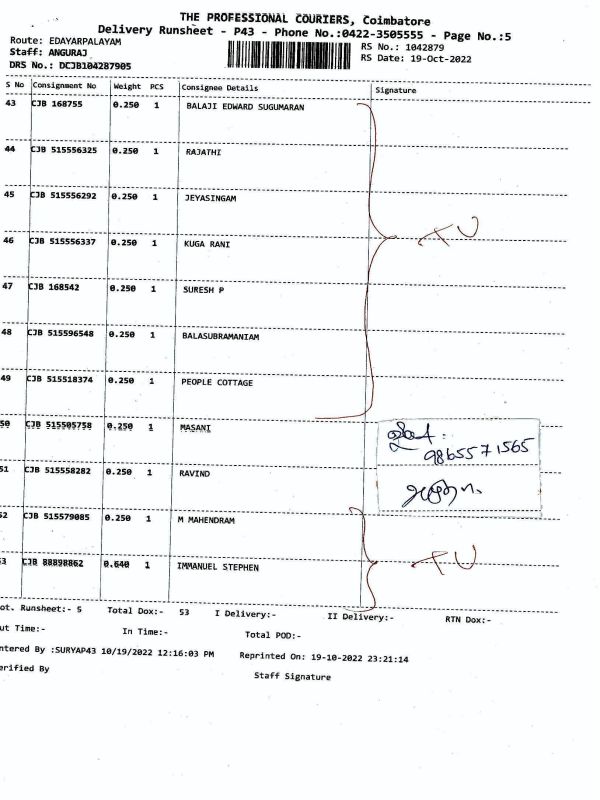 THE PROFESSIONAL COURIERS, Coimbatore
Delivery Runsheet - P43 - Phone No.:0422-3505555 - Page No.:5
Route: EDAYARPALAYAM RS No.: 1042879
Staff: ANGURAJ RS Date: 19-Oct-2022
DRS No.: DCJB104287905
S No Consignment No Weight PCS Consignee Details Signature
43 CJB 168755 0.250 1 BALAJI EDWARD SUGUMARAN
44 CJB 515556325 0.250 1 RAJATHI
45 CJB 515556292 0.250 1 JEYASINGAM
46 CJB 515556337 0.250 1 KUGA RANI
47 CJB 168542 0.250 1 SURESH P
48 CJB 515596548 0.250 1 BALASUBRAMANIAM
49 CJB 515518374 0.250 1 PEOPLE COTTAGE
50 CJB 515505758 0.250 1 MASANI
9865571565
51 CJB 515558282 0.250 1 RAVIND
52 CJB 515579085 0.250 1 M MAHENDRAM
53 CJB 88898862 0.640 1 IMMANUEL STEPHEN
ot. Runsheet:- 5 Total Dox:- 53 I Delivery:- II Delivery:- RTN Dox:-
ut Time:- In Time:- Total POD:-
ntered By :SURYAP43 10/19/2022 12:16:03 PM Reprinted On: 19-10-2022 23:21:14
erified By Staff Signature